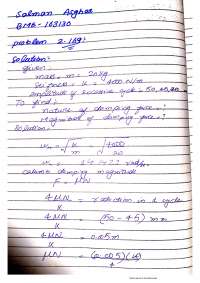 Salman Asghar
BME-163130
problem 2.169:
Solution:
given:
mass = m = 20 kg
stiffness = k = 4000 N/m
amplitude of successive cycle = 50, 45, 40
To find:
nature of damping force = ?
Magnitude of damping force = ?
Solution:
wn = √k/m = √4000/20
wn = 14.1421 rad/s
coloumb damping magnitude
F = μN
4μN/k = reduction in 1 cycle
4μN/k = (50 - 45) mm
4μN/k = 0.005m
μN = (0.005)(k)/4